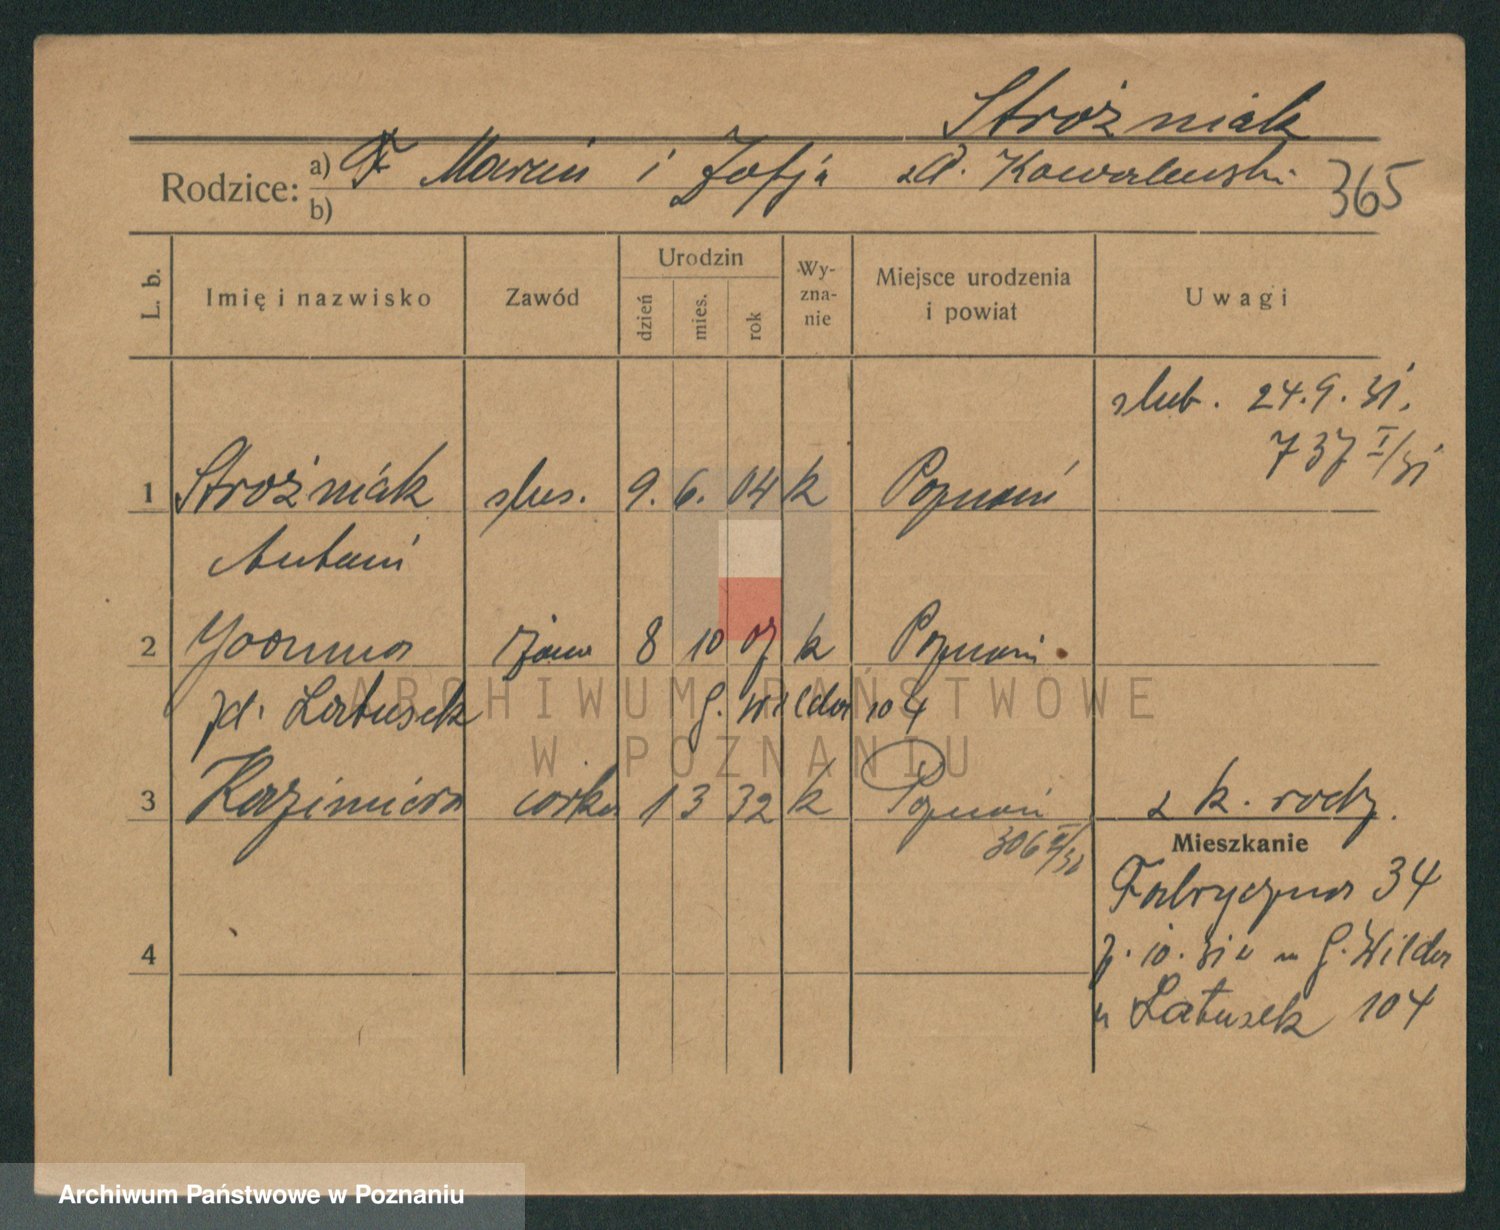 Stróżniak
Rodzice: a) F Marcin i Zofja zd. Kowalewski
b)
365
L. b. Imię i nazwisko Zawód Urodzin dzień mies. rok Wy-zna-nie Miejsce urodzenia i powiat Uwagi
ślub. 24.9.31.
737 I/31
1 Stróżniak ślus. 9. 6. 04 k Poznań
Antoni
2 Joanna żona 8 10 07 k Poznań
zd. Latusek G. Wilda 104
3 Kazimiera córka 1 3 32 k Poznań z k. rodz.
306 II/32
Mieszkanie
Fabryczna 34
7. 10. 31 G. Wilda
u Latusek 104
4
ARCHIWUM PAŃSTWOWE
W POZNANIU
Archiwum Państwowe w Poznaniu